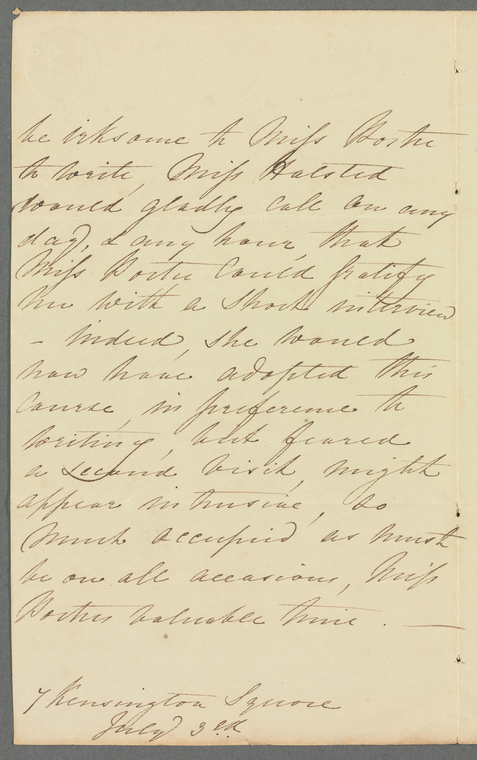 be irksome to Miss Porter
to write, Miss Halsted
would gladly call on any
day, & any hour, that
Miss Porter could gratify
her with a short interview
- indeed, she would
now have adopted this
course, in preference to
writing, but feared
a second visit, might
appear intrusive, so
much occupied as must
be on all occasions, Miss
Porters valuable time. —
7 Kensington Square
July 3rd